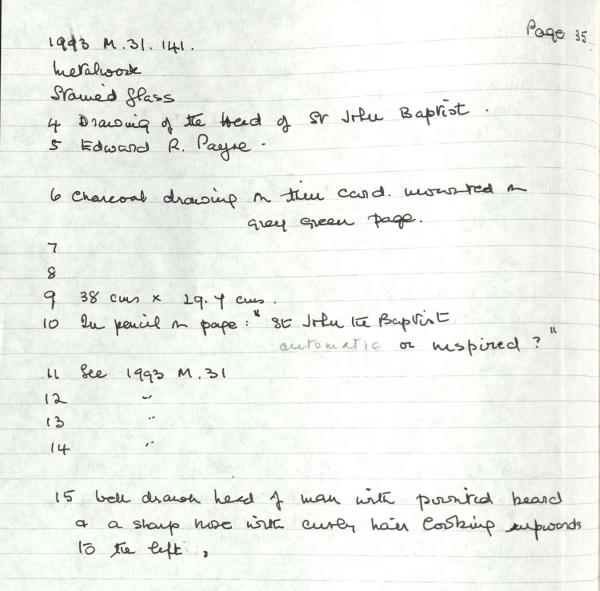 Page 35.
1993 M.31.141.
Metalwork
Stained Glass
4 Drawing of the Head of St John Baptist.
5 Edward R. Payne.
6 Charcoal drawing on thin card. mounted on
grey green page.
7
8
9 38 cms x 29.4 cms.
10 In pencil on page: "St John the Baptist
automatic or inspired?"
11 See 1993 M.31
12 "
13 "
14 "
15 well drawn head of man with pointed beard
& a sharp nose with curly hair looking upwards
to the left,